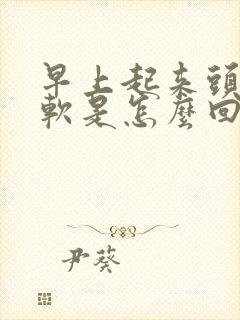 早上起来頭
軟是怎麼回
尹葵